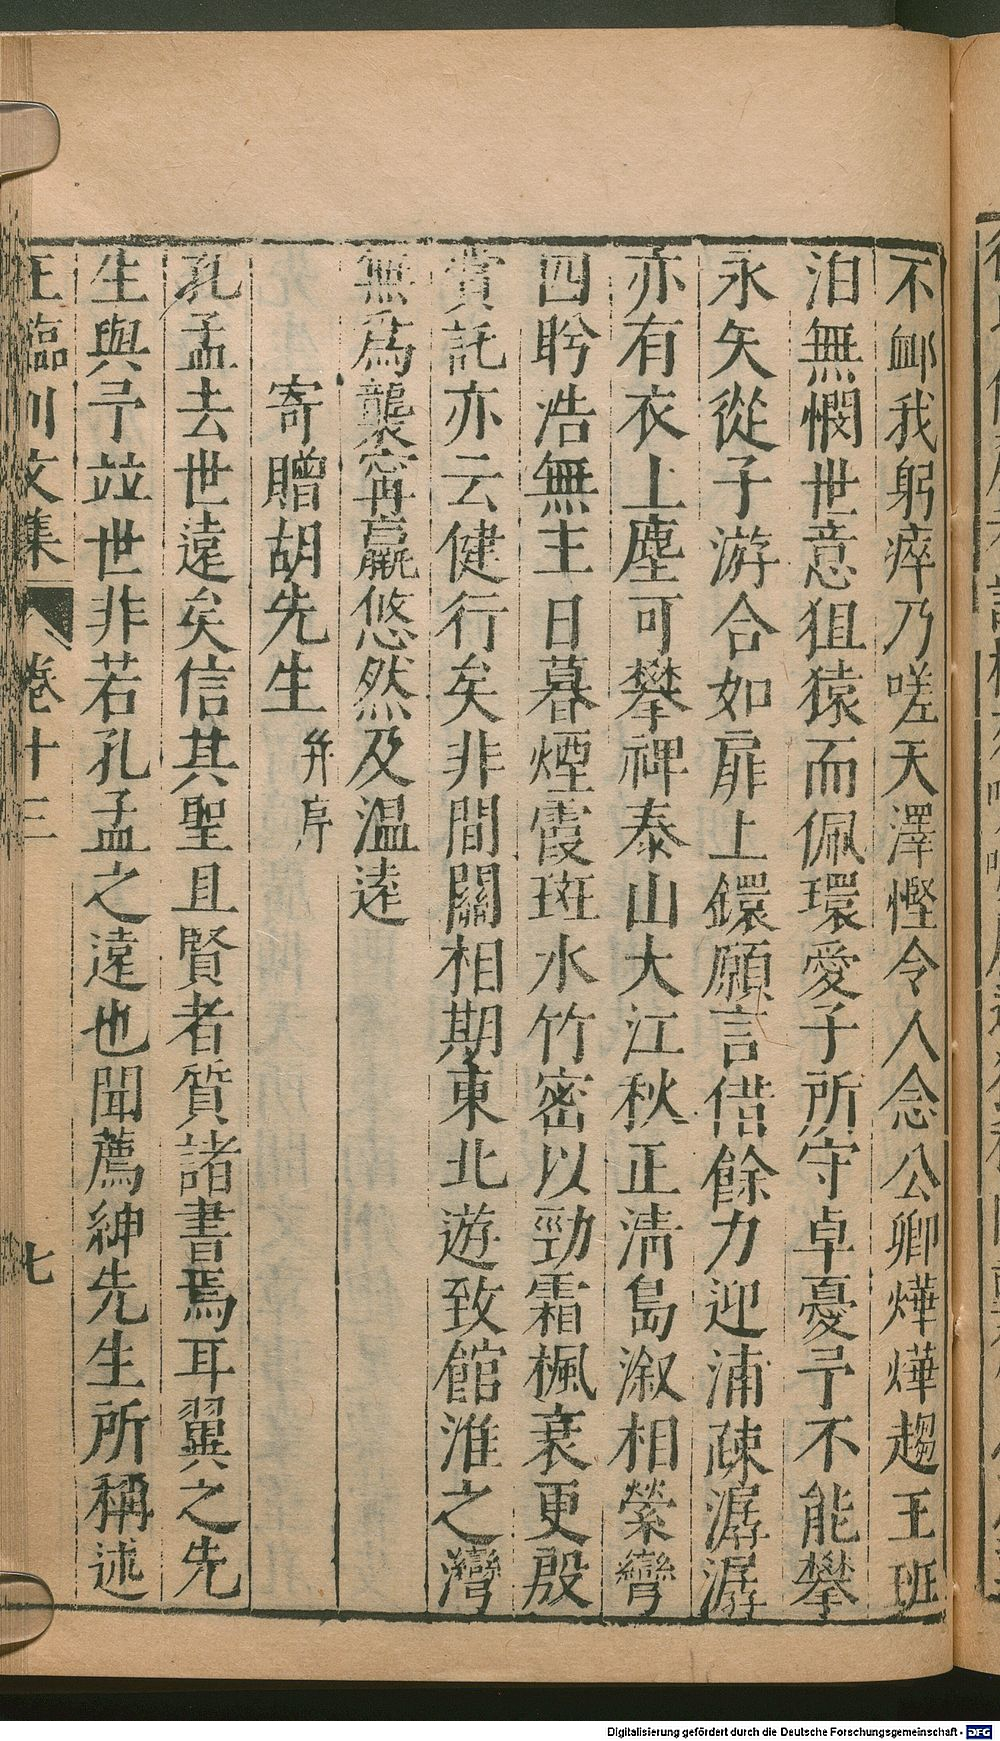 不䘏我躬瘁乃嗟天澤慳令人念公卿燁燁趨王班
泊無憫世意狙猿而佩環愛子所守卓憂予不能攀
永矢從子游合如扉上鐶願言借餘力迎浦疎潺潺
亦有衣上塵可攀裨泰山大江秋正清島溆相縈彎
四盻浩無主日暮煙霞斑水竹密以勁霜楓衰更殷
賞託亦云健行矣非間關相期東北遊致館淮之灣
無爲襲甯嬴悠然及温逺
寄贈胡先生 并序
孔孟去世遠矣信其聖且賢者質諸書焉耳翼之先
生與予並世非若孔孟之遠也聞薦紳先生所稱述
王臨川文集 卷十三 七
Digitalisierung gefördert durch die Deutsche Forschungsgemeinschaft - DFG